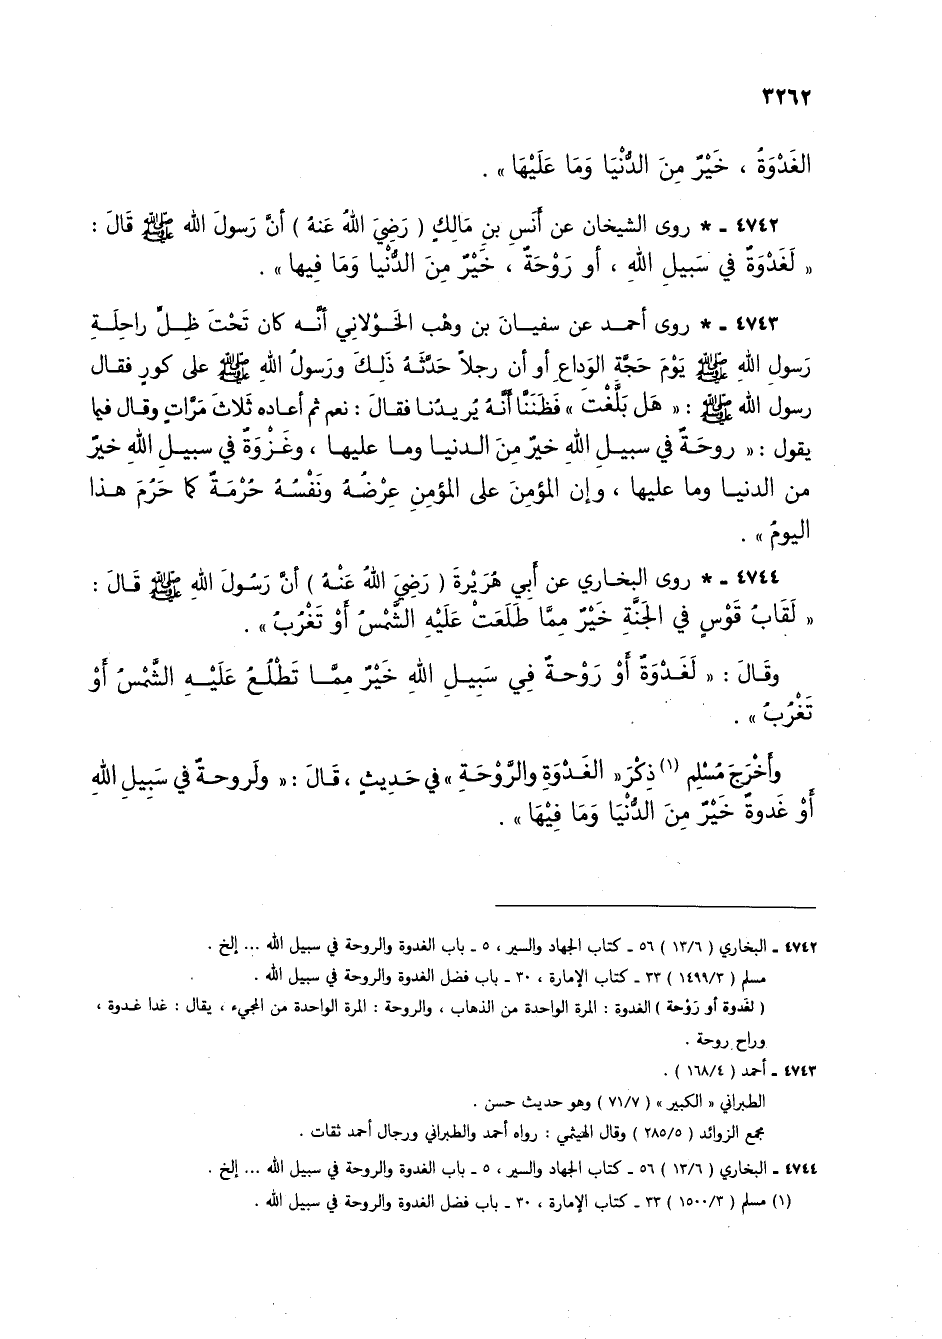 ٣٢٦٢
الغَدْوَةُ ، خَيْرٌ مِنَ الدُّنْيَا وَمَا عَلَيْهَا » .
٤٧٤٢ ـ * روى الشيخان عن أَنَسِ بنِ مَالِكٍ ( رَضِيَ اللهُ عَنهُ ) أنَّ رَسولَ الله ﷺ قَالَ :
« لَغَدْوَةٌ في سَبيلِ اللهِ ، أو رَوْحَةٌ ، خَيْرٌ مِنَ الدُّنْيا وَمَا فِيها » .
٤٧٤٣ ـ * روى أحمد عن سفيانَ بن وهْب الخَوْلاني أنَّه كان تَحْتَ ظِلِّ راحِلَةِ
رَسولِ اللهِ ﷺ يَوْمَ حَجَّةِ الوَداعِ أو أن رجلاً حَدَّثَهُ ذَلِكَ ورَسولُ اللهِ ﷺ على كورٍ فقال
رسول الله ﷺ : « هَل بَلَّغْتَ » فَظَنَنَّا أَنَّهُ يُريدُنا فقالَ : نعم ثم أعاده ثلاثَ مَرَّاتٍ وقال فيما
يقول : « روحَةٌ في سبيلِ اللهِ خيرٌ مِنَ الدنيا وما عليها ، وغَزْوَةٌ في سبيلِ اللهِ خيرٌ
من الدنيا وما عليها ، وإن المؤمِنَ على المؤمِنِ عِرْضُهُ ونَفْسُهُ حُرْمَةٌ كما حَرُمَ هذا
اليومُ » .
٤٧٤٤ ـ * روى البخاري عن أَبي هُرَيْرةَ ( رَضِيَ اللهُ عَنْهُ ) أنَّ رَسُولَ اللهِ ﷺ قَالَ :
« لَقَابُ قَوْسٍ في الجَنَّةِ خَيْرٌ مِمَّا طَلَعَتْ عَلَيْهِ الشَّمْسُ أَوْ تَغْرُبُ » .
وقَالَ : « لَغَدْوَةٌ أَوْ رَوْحةٌ فِي سَبِيلِ اللهِ خَيْرٌ مِمَّا تَطْلُعُ عَلَيْهِ الشَّمْسُ أَوْ
تَغْرُبُ » .
وأَخْرَجَ مُسْلِم (١) ذِكْرَ « الغَدْوَةِ والرَّوْحَةِ » في حَديثٍ ، قَالَ : « ولَروحةٌ في سَبِيلِ اللهِ
أَوْ غَدوةٌ خَيْرٌ مِنَ الدُّنْيَا وَمَا فِيْهَا » .
٤٧٤٢ ـ البخاري ( ١٣/٦ ) ٥٦ ـ كتاب الجهاد والسير ، ٥ ـ باب الغدوة والروحة في سبيل الله ... إلخ .
مسلم ( ١٤٩٩/٣ ) ٣٣ ـ كتاب الإمارة ، ٣٠ ـ باب فضل الغدوة والروحة في سبيل الله .
( لغَدوة أو رَوْحة ) الغدوة : المرة الواحدة من الذهاب ، والروحة : المرة الواحدة من المجيء ، يقال : غدا غدوة ،
وراح روحة .
٤٧٤٣ ـ أحمد ( ١٦٨/٤ ) .
الطبراني « الكبير » ( ٧١/٧ ) وهو حديث حسن .
مجمع الزوائد ( ٢٨٥/٥ ) وقال الهيثمي : رواه أحمد والطبراني ورجال أحمد ثقات .
٤٧٤٤ ـ البخاري ( ١٣/٦ ) ٥٦ ـ كتاب الجهاد والسير ، ٥ ـ باب الغدوة والروحة في سبيل الله ... إلخ .
(١) مسلم ( ١٥٠٠/٣ ) ٣٣ ـ كتاب الإمارة ، ٣٠ ـ باب فضل الغدوة والروحة في سبيل الله .